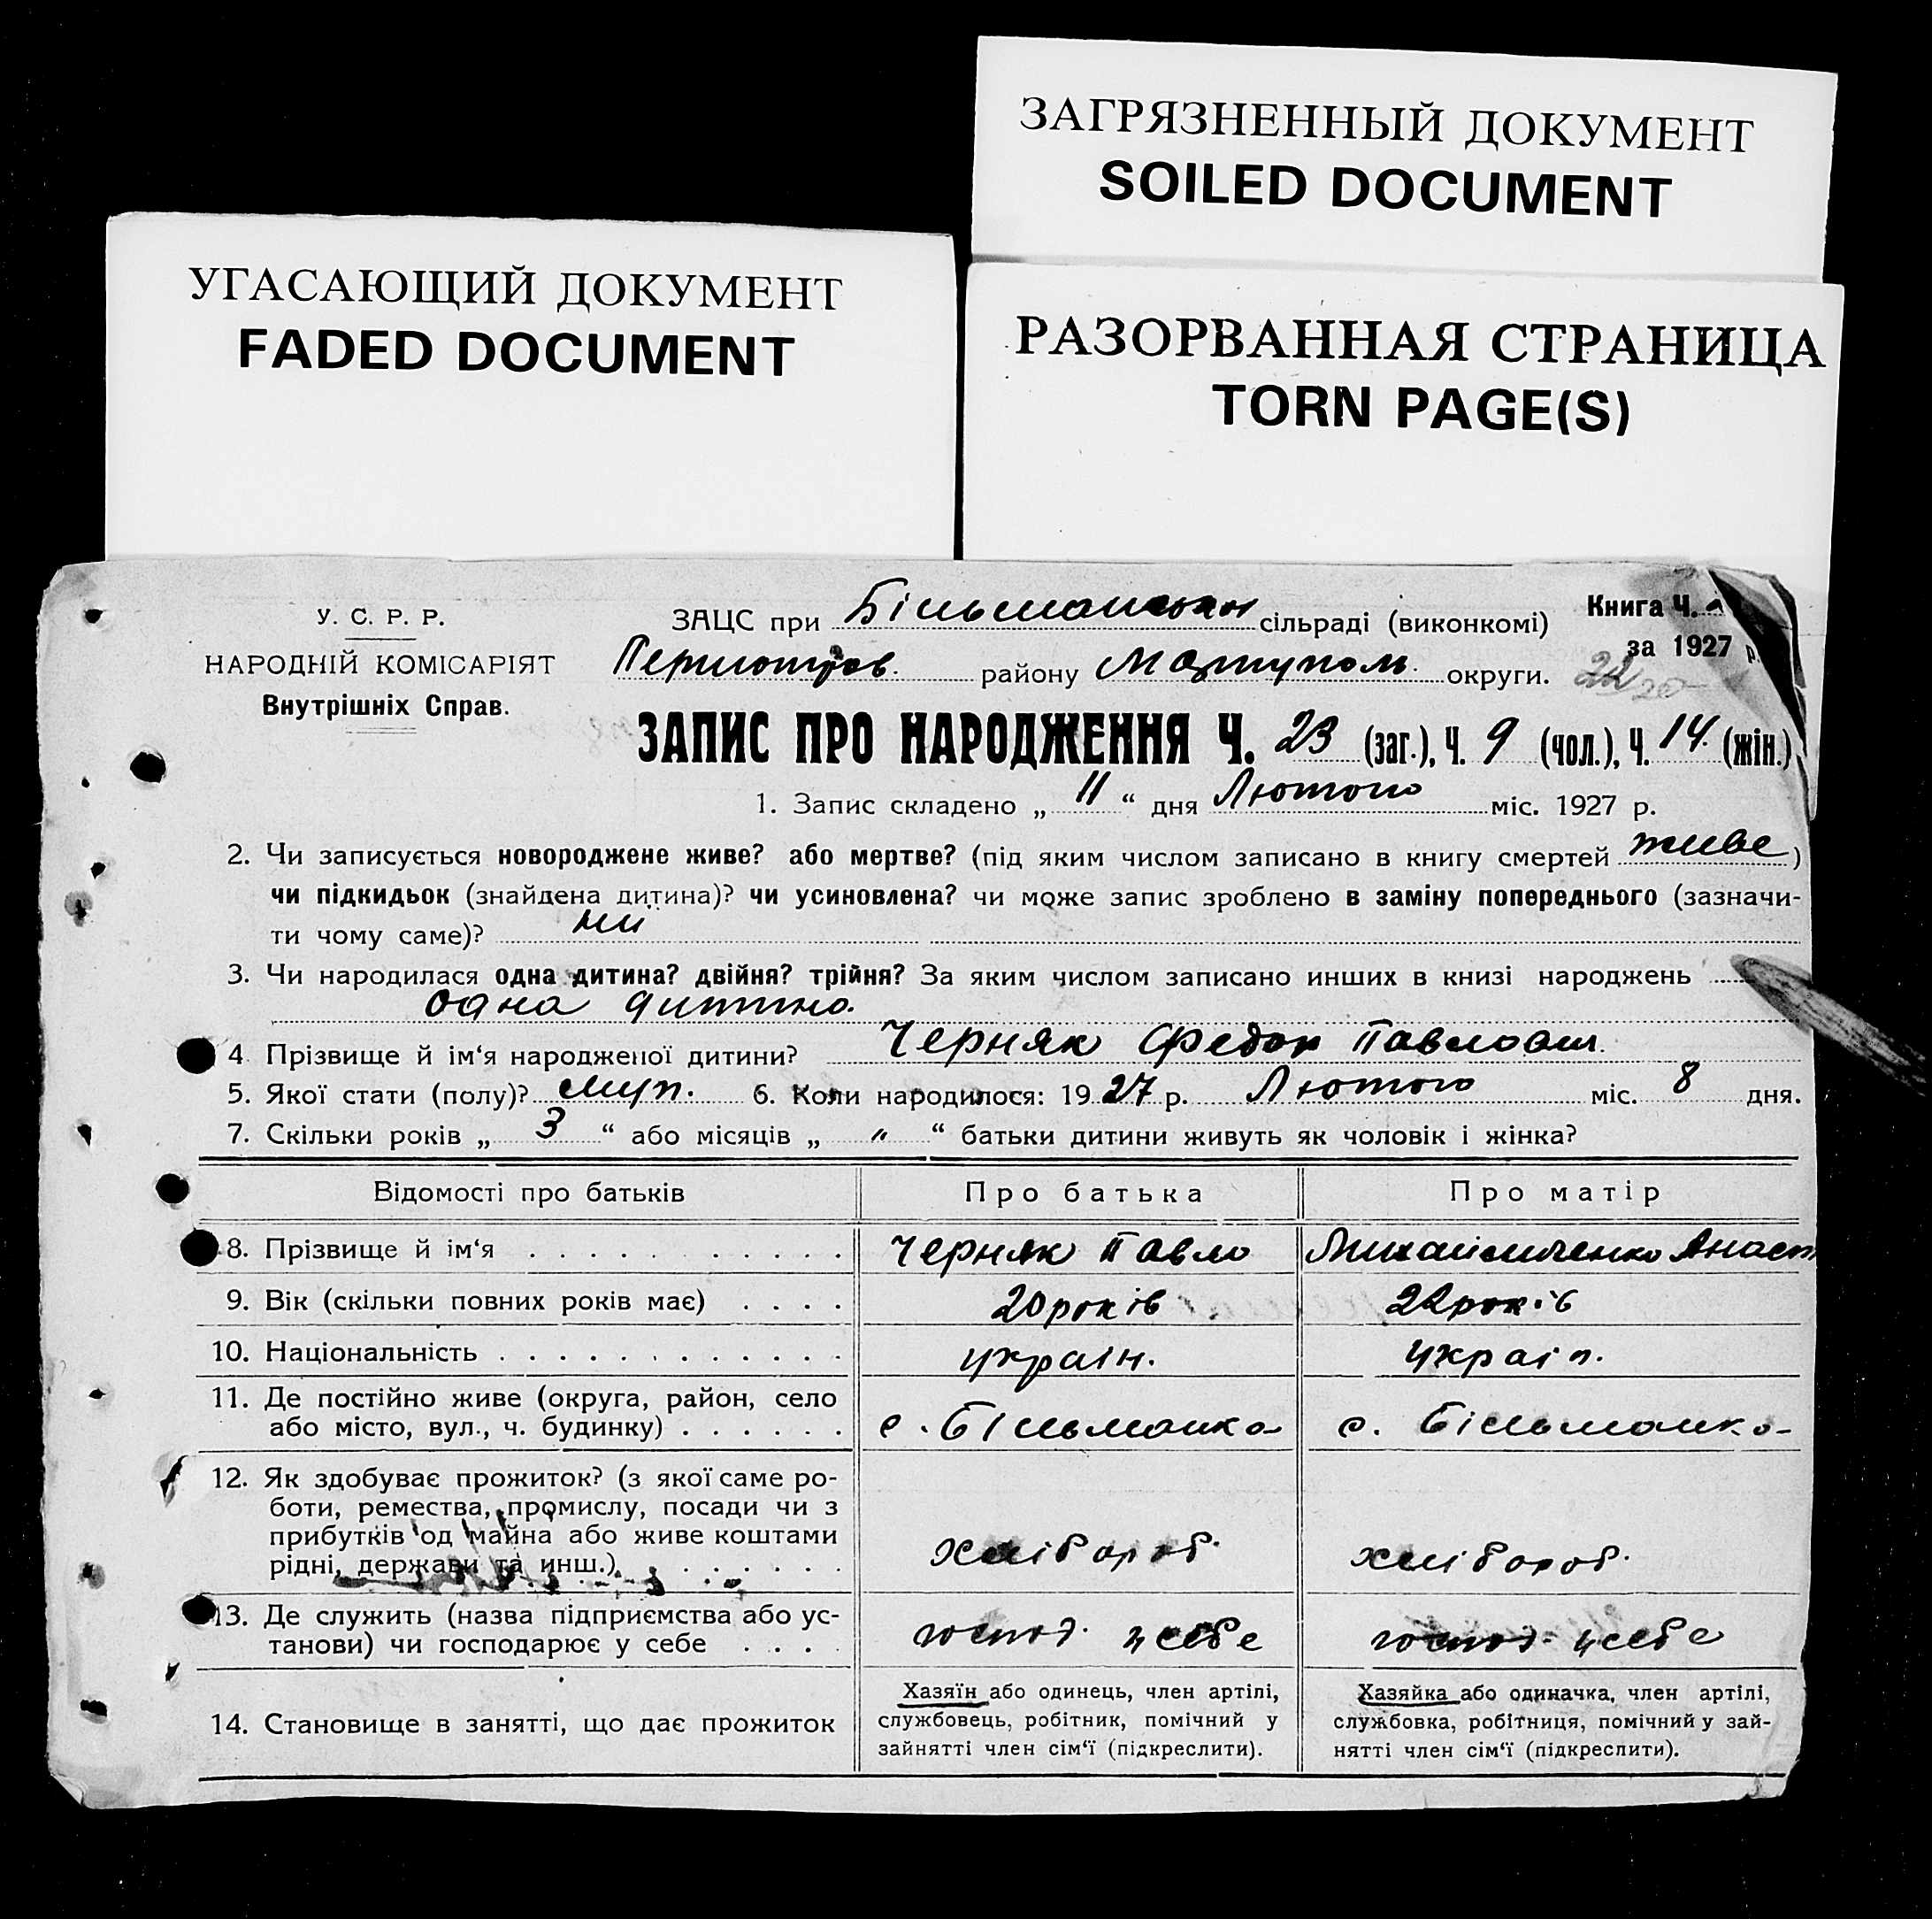 ЗАГРЯЗНЕННЫЙ ДОКУМЕНТ
SOILED DOCUMENT
УГАСАЮЩИЙ ДОКУМЕНТ
FADED DOCUMENT
РАЗОРВАННАЯ СТРАНИЦА
TORN PAGE(S)
У. С. Р. Р.
НАРОДНІЙ КОМІСАРІЯТ
Внутрішніх Справ.
ЗАЦС при Більманськ сільраді (виконкомі)
Книга Ч.
району Маріуполь. округи.
за 1927 р.
ЗАПИС ПРО НАРОДЖЕННЯ Ч. 23 (заг.), Ч. 9 (чол.), Ч. 14. (жін.)
1. Запис складено „ 11 “ дня Лютого міс. 1927 р.
2. Чи записується новороджене живе? або мертве? (під яким числом записано в книгу смертей живе )
чи підкидьок (знайдена дитина)? чи усиновлена? чи може запис зроблено в заміну попереднього (зазначи-
ти чому саме)? ні
3. Чи народилася одна дитина? двійня? трійня? За яким числом записано инших в книзі народжень
одна дитина.
4 Прізвище й ім‘я народженої дитини? Черняк Федор Павлович.
5. Якої стати (полу)? муж. 6. Коли народилося: 1927 р. Лютого міс. 8 дня.
7. Скільки років „ 3 “ або місяців „ " “ батьки дитини живуть як чоловік і жінка?
Відомості про батьків Про батька Про матір
8. Прізвище й ім‘я Черняк Павло Михайличенко Анаст
9. Вік (скільки повних років має) 20 років 22 років
10. Національність україн. україн.
11. Де постійно живе (округа, район, село
або місто, вул., ч. будинку) с. Більманка с. Більманка
12. Як здобуває прожиток? (з якої саме ро-
боти, ремества, промислу, посади чи з
прибутків од майна або живе коштами
рідні, держави та инш.) хлібороб. хлібороб.
13. Де служить (назва підприємства або ус-
танови) чи господарює у себе господ. у себе господ. у себе
14. Становище в занятті, що дає прожиток
Хазяїн або одинець, член артілі,
службовець, робітник, помічний у
зайнятті член сім‘ї (підкреслити).
Хазяйка або одиначка, член артілі,
службовка, робітниця, помічний у зай-
нятті член сім‘ї (підкреслити).